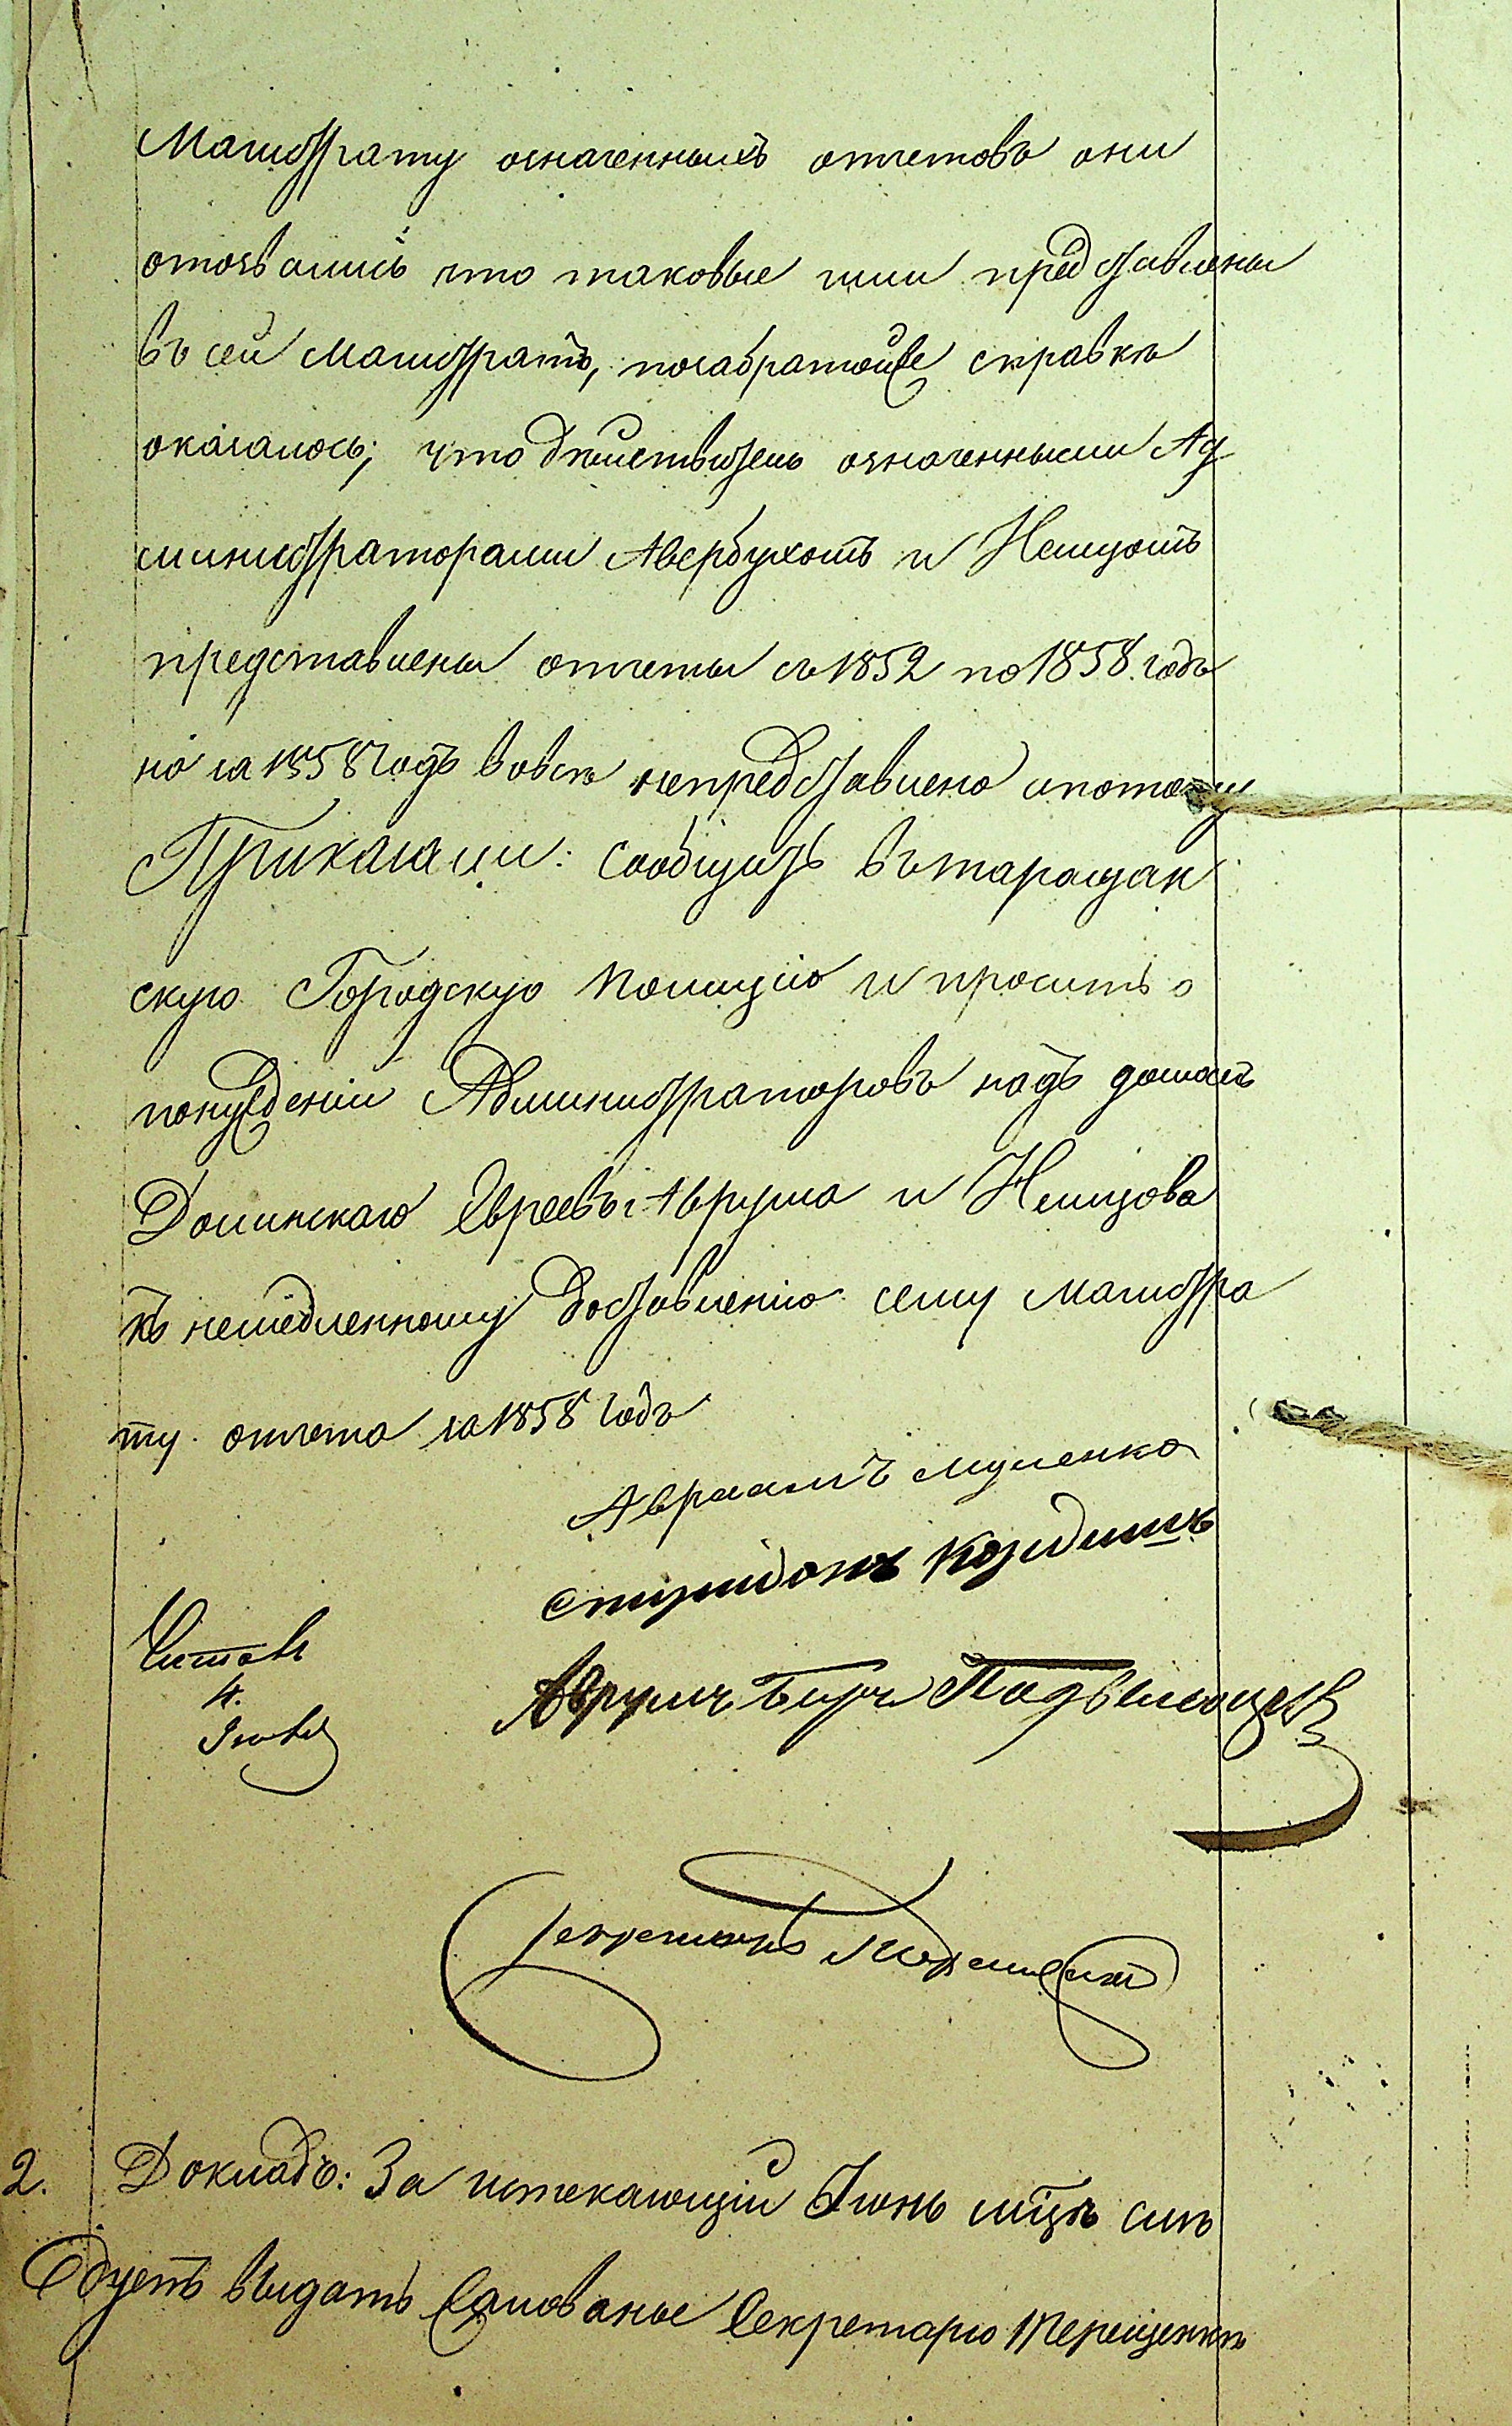 Магистрату означенныхъ отчетовъ они
отозвались что таковые ими представлены
въ сей Магистратъ, справке
оказалось; что действитель означенными Ад
министраторами Авербухомъ и Немцомъ
представлены отчеты съ 1852 по 1858. годъ
но за 1858 Годъ вовсе непредставлено ипотому
Приказали: Сообщить въ таращан
скую Городскую Полицію и просить о
понужденіи Администраторовъ надъ домомъ
Долинскаго Евреевъ Аврума и Немцова
къ немедленному доставленію сему Магистра
ту отчета за 1858 Годъ
Авраамъ
Аврумъ Беръ
Читалъ
4.
Секретарь Терещенко
2. Докладъ: За истекающій Іюнь мцъ слѣ
дуетъ выдать Жалованье Секретарю Терещенкѣ